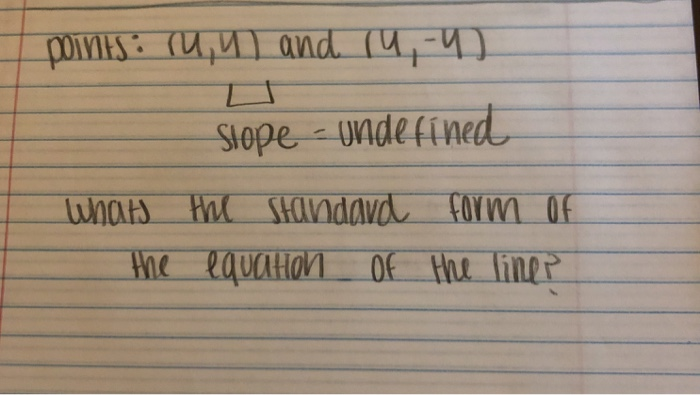 points: (4,4) and (4,-4)
slope = undefined
whats the standard form of
the equation of the line?